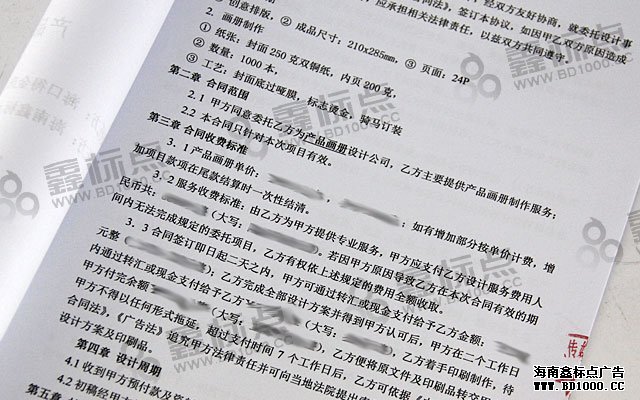 经双方友好协商，就委托设计事
应承担相关法律责任，以兹双方共同遵守。
签订本协议，如因甲乙双方原因造成
① 创意排版，② 成品尺寸：210x285mm，③ 页面：24P
2. 画册制作
① 纸张：封面250克双铜纸，内页200克，
② 数量：1000本，
③ 工艺：封面底过哑膜，标志烫金，骑马订装
第二章 合同范围
2.1 甲方同意委托乙方为产品画册设计公司，乙方主要提供产品画册制作服务；
2.2 本合同只针对本次项目有效。
第三章 合同收费标准
3.1 产品画册单价： ；如有增加部分按单价计费，增
加项目款项在尾款结算时一次性结清。
3.2 服务收费标准：由乙方为甲方提供专业服务，甲方应支付乙方设计服务费用人
民币共： （大写： ）。若因甲方原因导致乙方在本次合同有效的期
间内无法完成规定的委托项目，乙方有权依上述规定的费用全额收取。
3.3 合同签订即日起二天之内，甲方可通过转汇或现金支付给予乙方金额：
元整（ ）；乙方完成全部设计方案并得到甲方认可后，甲方在二个工作日
内通过转汇或现金支付给予乙方 （大写， ），乙方着手印刷制作，待
甲方付完余额 （大写， ），乙方便将原文件及印刷品转交
甲方不得以任何形式拖延，超过支付时间7个工作日后，乙方可依据《
合同法》，《广告法》追究甲方法律责任并可向当地法院提出
设计方案及印刷品。
第四章 设计周期
4.1 收到甲方预付款及
4.2 初稿经甲方
第五章
鑫标点
WWW.BD1000.CC
海南鑫标点广告
WWW.BD1000.CC